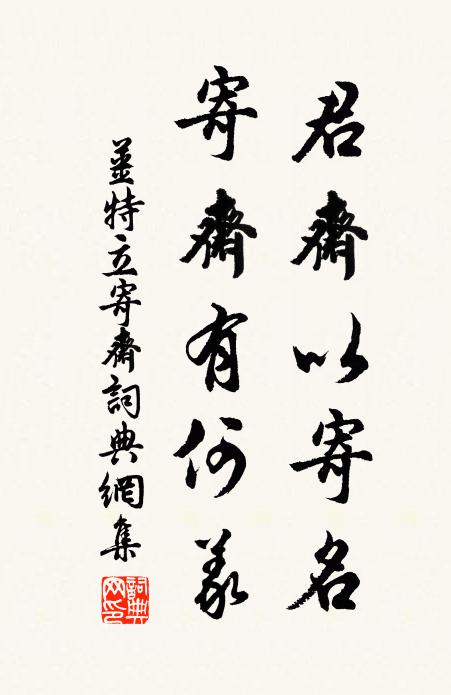 君齋以寄名
寄齋有何義
姜特立寄齋詞典網集
詞典网印